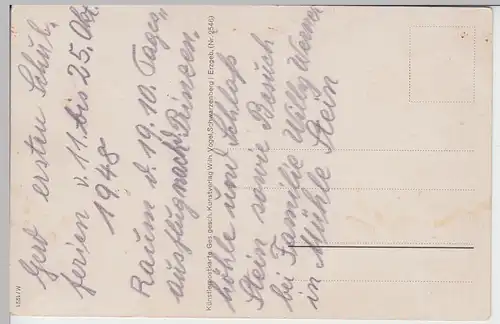 Gert ersten Schul-
ferien v. 11. bis 25. Okt.
1948
Raum v. 19.10. Tages-
ausflug nach Prinzen-
höhle und Schloß
Stein sowie Besuch
bei Familie Willy Werner
in Mühle Stein
Künstlerpostkarte. Ges. gesch. Kunstverlag Wilh. Vogel, Schwarzenberg i. Erzgeb. (Nr. 2546)